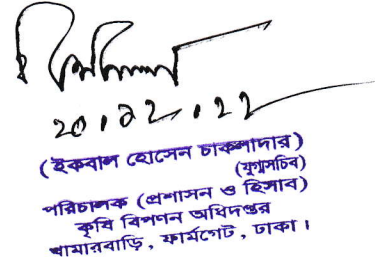 ২০.১২.২২
(ইকবাল হোসেন চাকলাদার)
(যুগ্মসচিব)
পরিচালক (প্রশাসন ও হিসাব)
কৃষি বিপণন অধিদপ্তর
খামারবাড়ি, ফার্মগেট, ঢাকা।